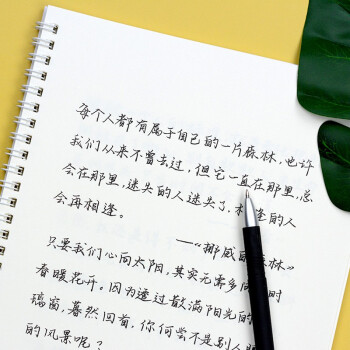 每个人都有属于自己的一片森林，也许
我们从来不曾去过，但它一直在那里，总
会在那里，迷失的人迷失了，相逢的人
会再相逢。
——“挪威的森林”
只要我们心向太阳，其实无需多问 时
春暖花开。因为透过散满阳光的
璃窗，蓦然回首，你何尝不是别人眼
的风景呢？